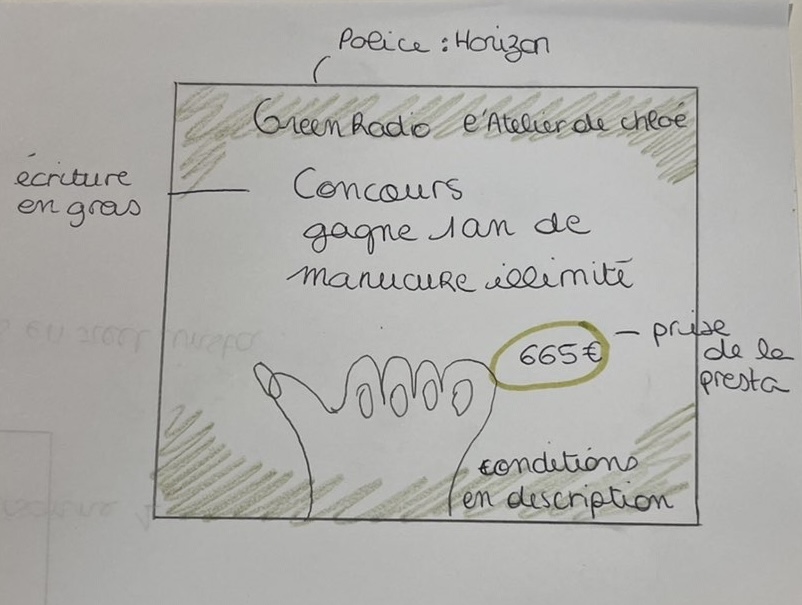 Police : Horizon
GreenRadio l'Atelier de chloé
écriture
en gras
Concours
gagne 1an de
manucure illimité
665€
prise
de la
presta
conditions
en description